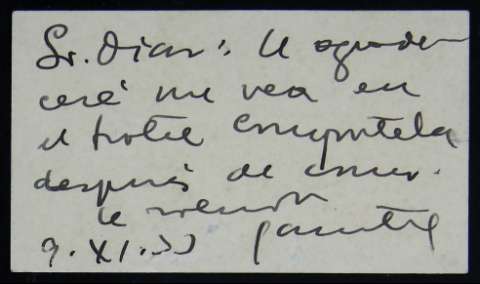 Sr. Díaz: Le agrade-
ceré me vea en
el hotel Compostela
después de comer.
Le
9. XI. 33